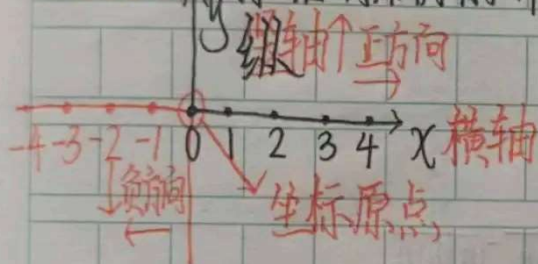 y 纵轴↑正方向
→
-4 -3 -2 -1 0 1 2 3 4 x 横轴
↓负方向
←
坐标原点